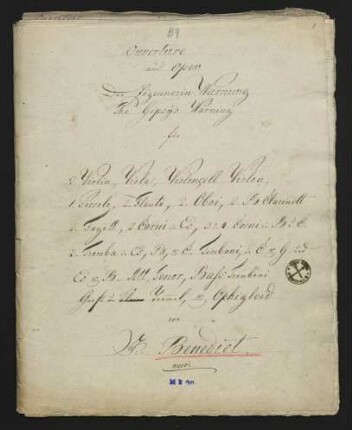 89
Ouverture
und Oper
Der Zigeunerin Warnung
The Gipsy's Warning
für
2 Violin, Viola, Violoncell, Violon,
1 Piccolo, 2 Flauto, 2 Oboi, 2 B Clarinett
2 Fagott, 2 Corni in Es, 3 & 4 Corni in B & C.
2 Tromba in Es, B, & C. Timbani, in C & G. und
Es & B. Alt, Tenor, Bass Tromboni
Gross u. Tromel, & Ophigleid
von
Benedict
M B 90